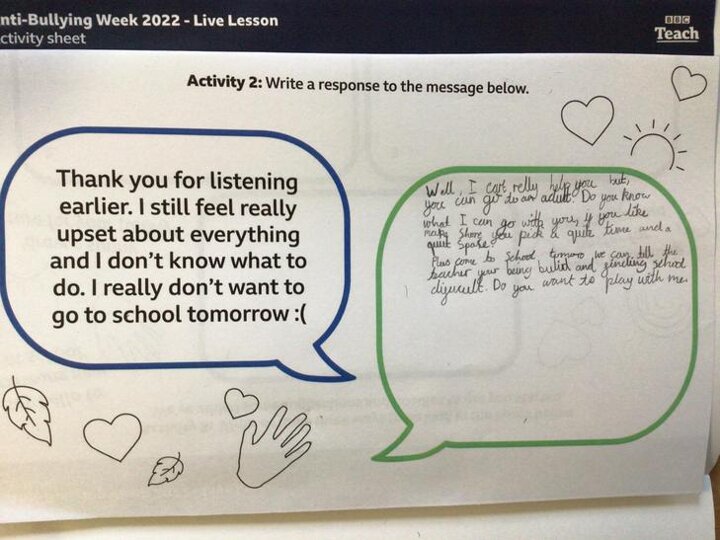 nti-Bullying Week 2022 - Live Lesson
ctivity sheet
BBC
Teach
Activity 2: Write a response to the message below.
Thank you for listening
earlier. I still feel really
upset about everything
and I don't know what to
do. I really don't want to
go to school tomorrow :(
Well, I cart relly help you but,
you can go to an adult. Do you know
what I can go with you, if you like
make shore you pick a quite time and a
quiet spase?
Plus come to school tomoro we can tell the
teacher your being bulied and finding school
dificult. Do you want to play with me.